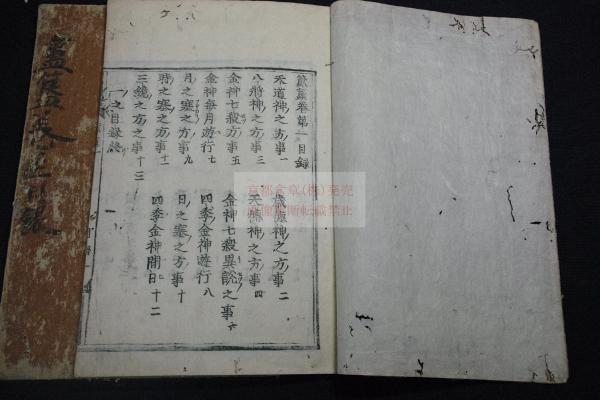 簠簋卷第一目録
天道神之方事一　歳徳神之方事二
八将神之方事三　天徳神之方事四
金神七殺方事五　金神七殺異説之事六
金神毎月遊行七　四季金神遊行八
月之塞之方事九　日之塞之方事十
時之塞之方事十一　四季金神間日十二
三鏡之方之事十三
一之目録終
画像無断転載禁止